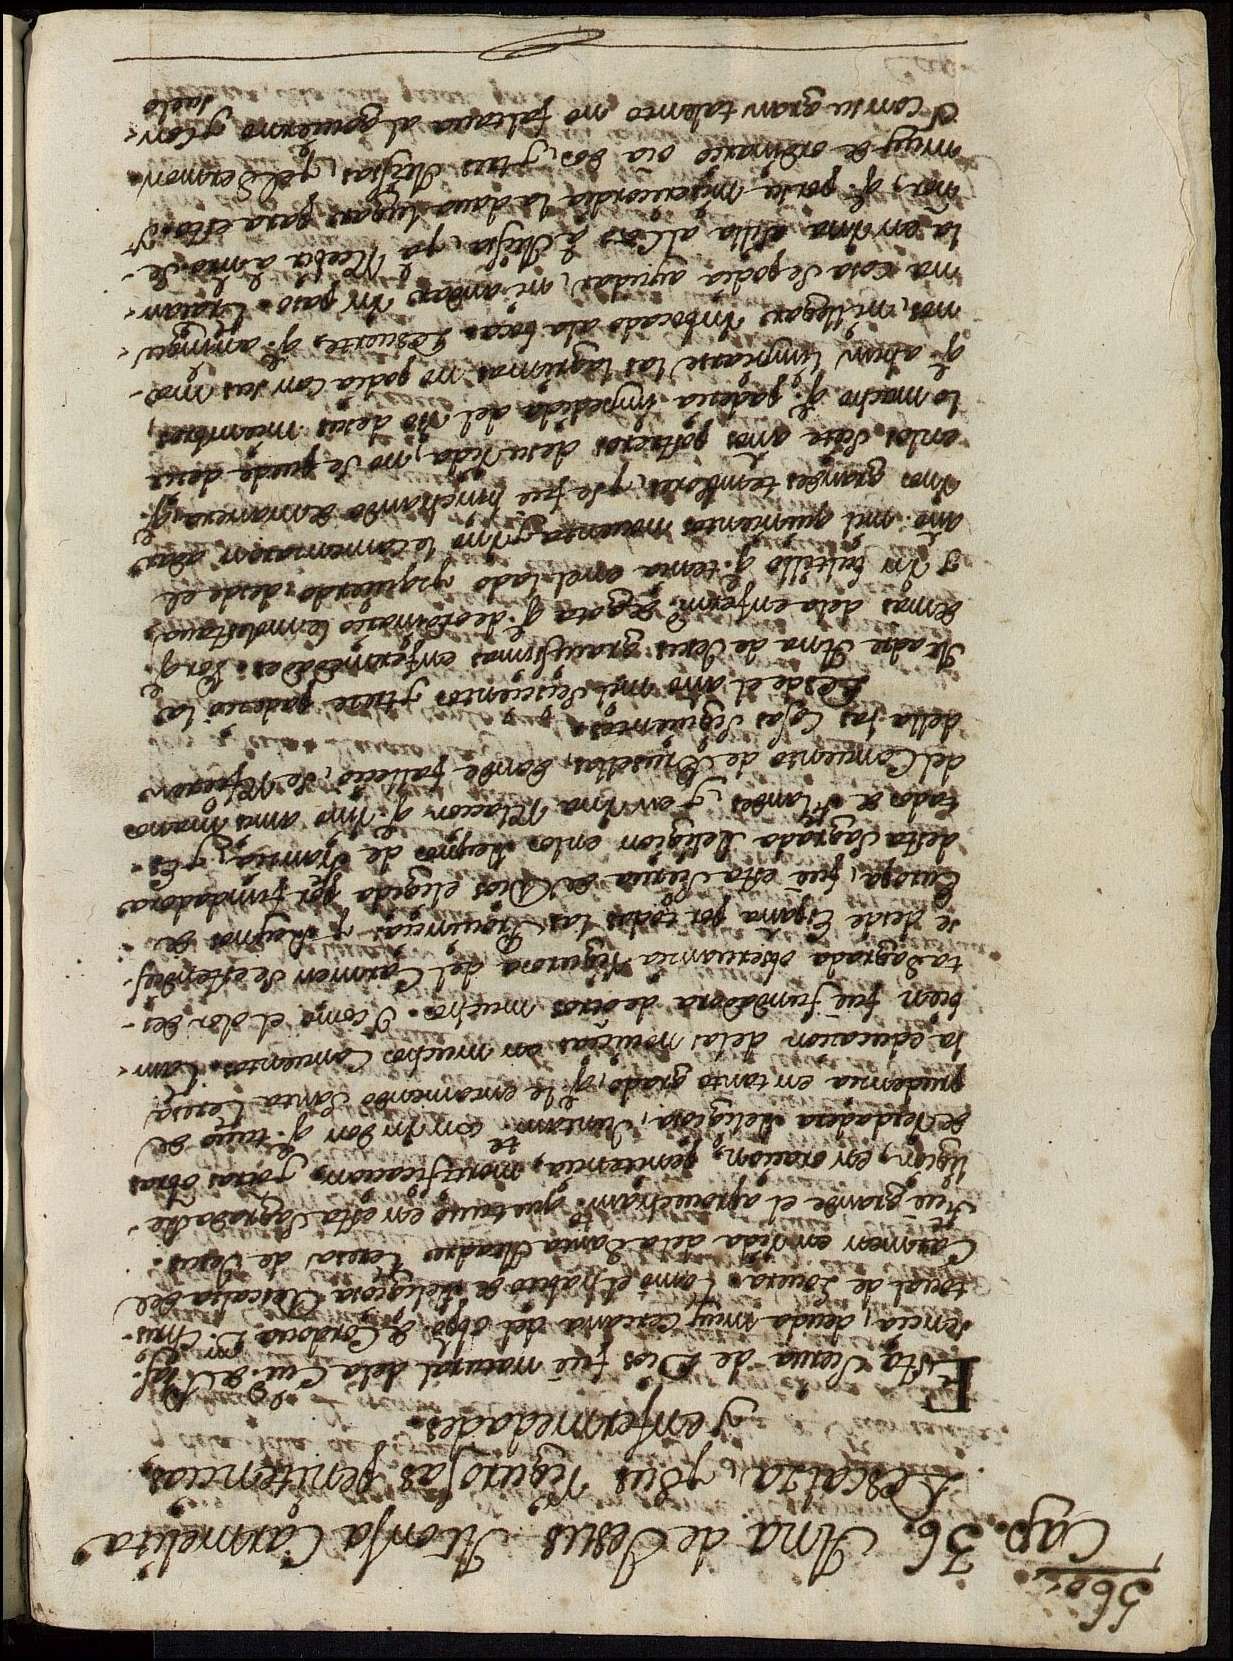 560.
Cap. 36. Ana de Jesus Monja Carmelita
Descalza, y sus rigurosas penitencias,
y enfermedades.
Esta Sierua de Dios fue natural dela Ciu.d de Plaf-
sencia, deuda muy cercana del obpo de Cordoua D. Chris-
toual de Louera. Tomò el habito de Religiosa Descalza del
Carmen en vida dela Santa Madre Teresa de Jesus.
Fue grande el aprouecham.to que tuuo en esta Sagrada Re-
ligion, en oracion, penitencia, mortificacion, y otras obras
de verdadera Religiosa, Juntam.te con vn don q. tuuo de
prudencia en tanto grado, q. le encomendò Santa Teresa
la educacion delas nouicias en muchos Conuentos. Tam-
bien fue fundadora de otros muchos. Y como el olor des-
ta Sagrada obseruancia Rigurosa del Carmen se estendies-
se desde España por todas las Prouincias, y Reynos de
Europa, fue esta Sierua de Dios eligida por fundadora
desta Sagrada Religion enlos Reynos de Francia, y Es-
tados de Flandes, y en vna Relacion q. vino a mis manos
del Conuento de Bruselas, donde fallecio, se Refieren
della las cosas siguientes.
Desde el año mil seiscientos y trece padecio la
Madre Ana de Jesus grauissimas enfermedades. Porq.
demas dela enferm.d de gota q. de ordinario le molestaua,
Y vn bultillo q. tenia enel lado yzquierdo: desde el
año mil quinientos nouenta y vno le començaron a dar
vnos grandes temblores, y se fue hinchando de manera, q.
enlos siete años postreros desu vida, no se puede dezir
lo mucho q. padecia impedida del vso desus miembros,
q. aun limpiarse las lagrimas no podia con sus ma-
nos, ni llegar vn bocado ala boca. De suerte q. a ningu-
na cosa se podia ayudar, ni andar vn paso. Traian-
la en vna silla al Coro à Missa, y a Receuir a nro Se-
ñor, q. por su misericordia la daua lugar para esto: y
muy de ordinario oia dos, y tres Missas, y el Sermon.
Y con su gran talento no faltaua al gouierno, y con-
suelo